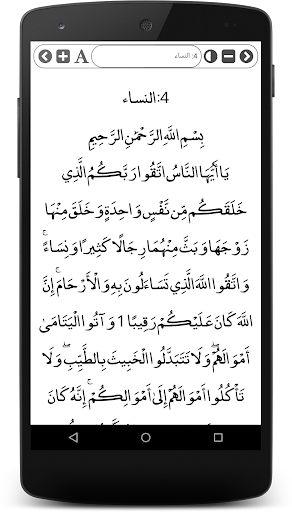 A 4: النساء
4:النساء
بِسْمِ اللَّهِ الرَّحْمَٰنِ الرَّحِيمِ
يَا أَيُّهَا النَّاسُ اتَّقُوا رَبَّكُمُ الَّذِي
خَلَقَكُم مِّن نَّفْسٍ وَاحِدَةٍ وَخَلَقَ مِنْهَا
زَوْجَهَا وَبَثَّ مِنْهُمَا رِجَالًا كَثِيرًا وَنِسَاءً ۚ
وَاتَّقُوا اللَّهَ الَّذِي تَسَاءَلُونَ بِهِ وَالْأَرْحَامَ ۚ إِنَّ
اللَّهَ كَانَ عَلَيْكُمْ رَقِيبًا 1 وَآتُوا الْيَتَامَىٰ
أَمْوَالَهُمْ ۖ وَلَا تَتَبَدَّلُوا الْخَبِيثَ بِالطَّيِّبِ ۖ وَلَا
تَأْكُلُوا أَمْوَالَهُمْ إِلَىٰ أَمْوَالِكُمْ ۚ إِنَّهُ كَانَ